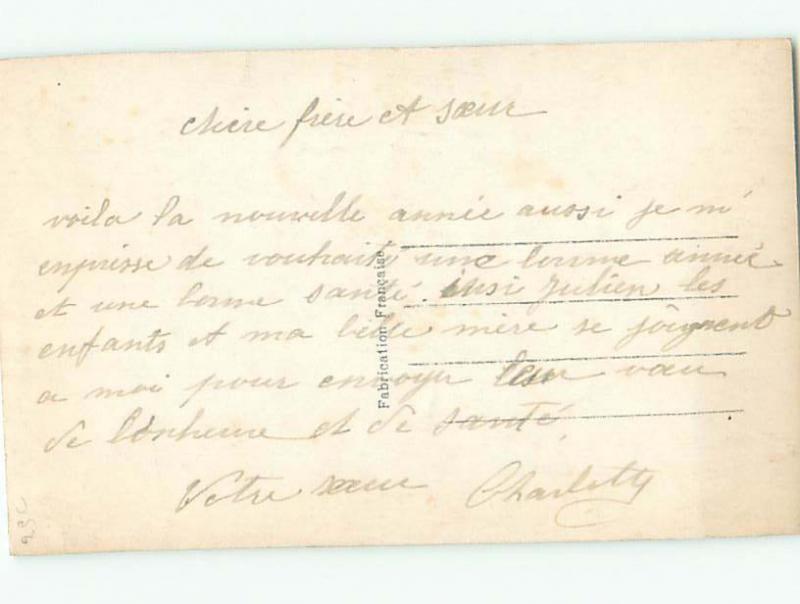 chère frère et sœur
voila la nouvelle année aussi je m'
enpresse de vouhait une bonne année
et une bonne santé. insi Julien les
enfants et ma belle mère se joignent
a moi pour envoyer leur vœu
de bonheure et de santé.
Votre sœur Charlotte
Fabrication Française
23C